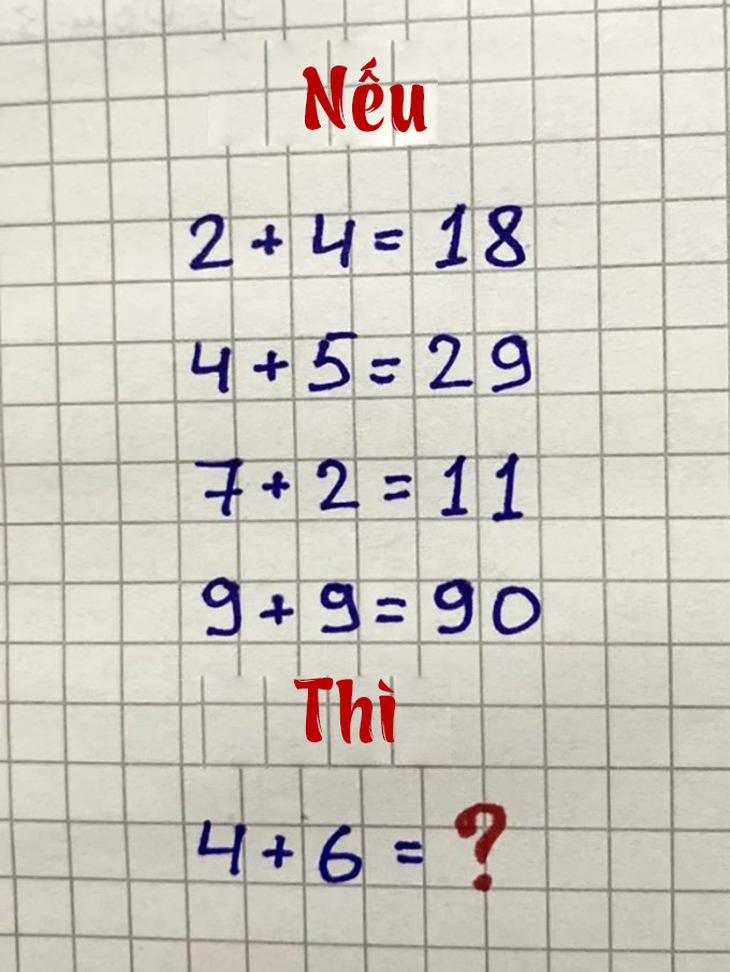 Nếu
2 + 4 = 18
4 + 5 = 29
7 + 2 = 11
9 + 9 = 90
Thì
4 + 6 = ?